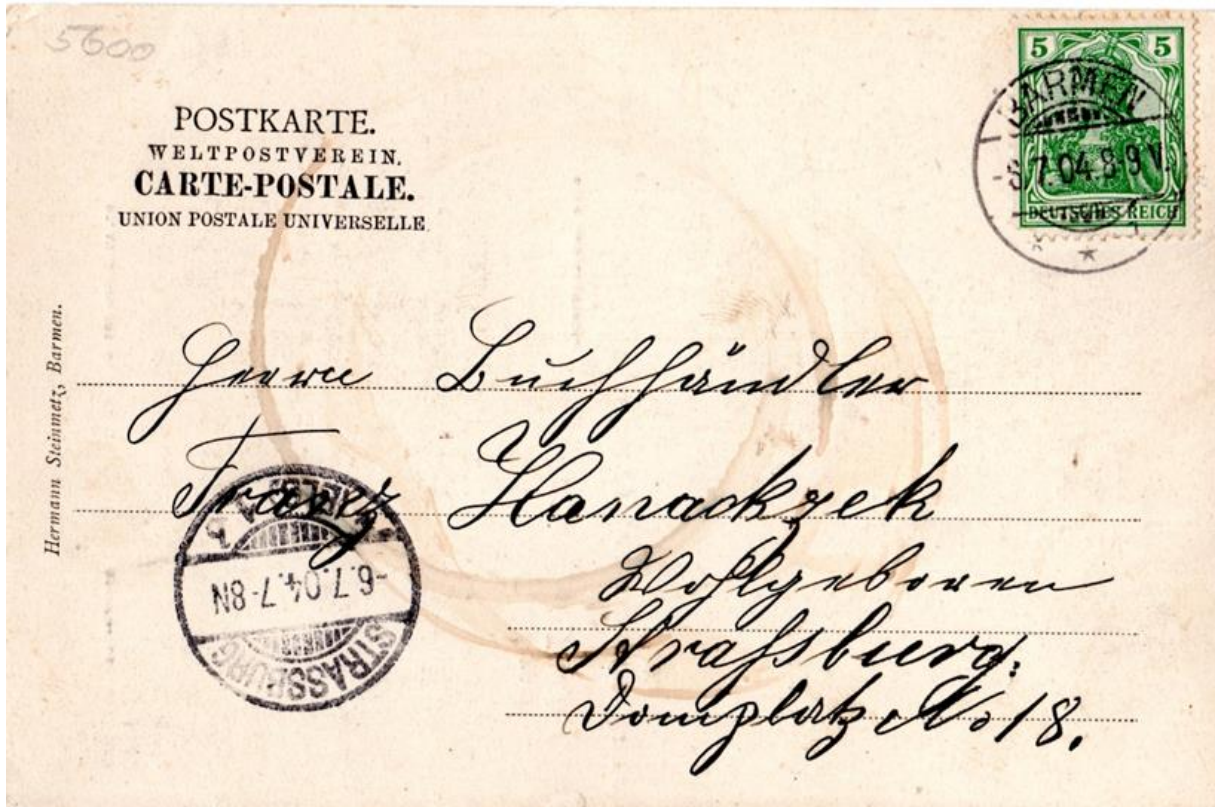 5600
POSTKARTE.
WELTPOSTVEREIN.
CARTE-POSTALE.
UNION POSTALE UNIVERSELLE
5 5
DEUTSCHES REICH
BARMEN
7.04.8-9V.
Hermann Steinmetz, Barmen.
Herrn Buchhändler
Franz Hanackzek
Wohlgeboren
Strassburg.
Domplatz No 18.
STRASSBURG
-6.7.04.7-8N